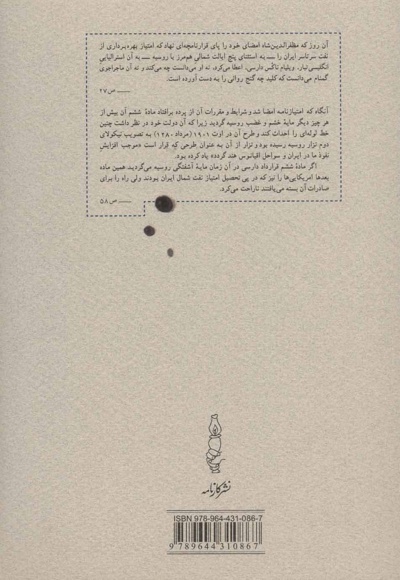 آن روز که مظفرالدین‌شاه امضای خود را پای قرارنامچه‌ای نهاد که امتیاز بهره‌برداری از
نفت سرتاسر ایران را — به استثنای پنج ایالت شمالی هم‌مرز با روسیه — به آن استرالیایی
انگلیسی‌تبار، ویلیام ناکس دارسی، اعطا می‌کرد، نه او می‌دانست چه می‌کند و نه آن ماجراجوی
گمنام می‌دانست که کلید چه گنج روانی را به دست آورده است.
— ص ۲۷
آنگاه که امتیازنامه امضا شد و شرایط و مقررات آن از پرده برافتاد مادهٔ ششم آن بیش از
هر چیز دیگر مایهٔ خشم و غضب روسیه گردید زیرا که آن دولت خود در نظر داشت چنین
خط لوله‌ای را احداث کند و طرح آن در اوت ۱۹۰۱ (مرداد ۱۲۸۰) به تصویب نیکولای
دوم تزار روسیه رسیده بود و تزار از آن به عنوان طرحی که قرار است «موجب افزایش
نفوذ ما در ایران و سواحل اقیانوس هند گردد» یاد کرده بود.
اگر مادهٔ ششم قرارداد دارسی در آن زمان مایهٔ آشفتگی روسیه می‌گردید همین ماده
بعدها امریکایی‌ها را نیز که در پی تحصیل امتیاز نفت شمال ایران بودند ولی راه را برای
صادرات آن بسته می‌یافتند ناراحت می‌کرد.
— ص ۵۸
نشر کارنامه
ISBN 978-964-431-086-7
9 789644 310867